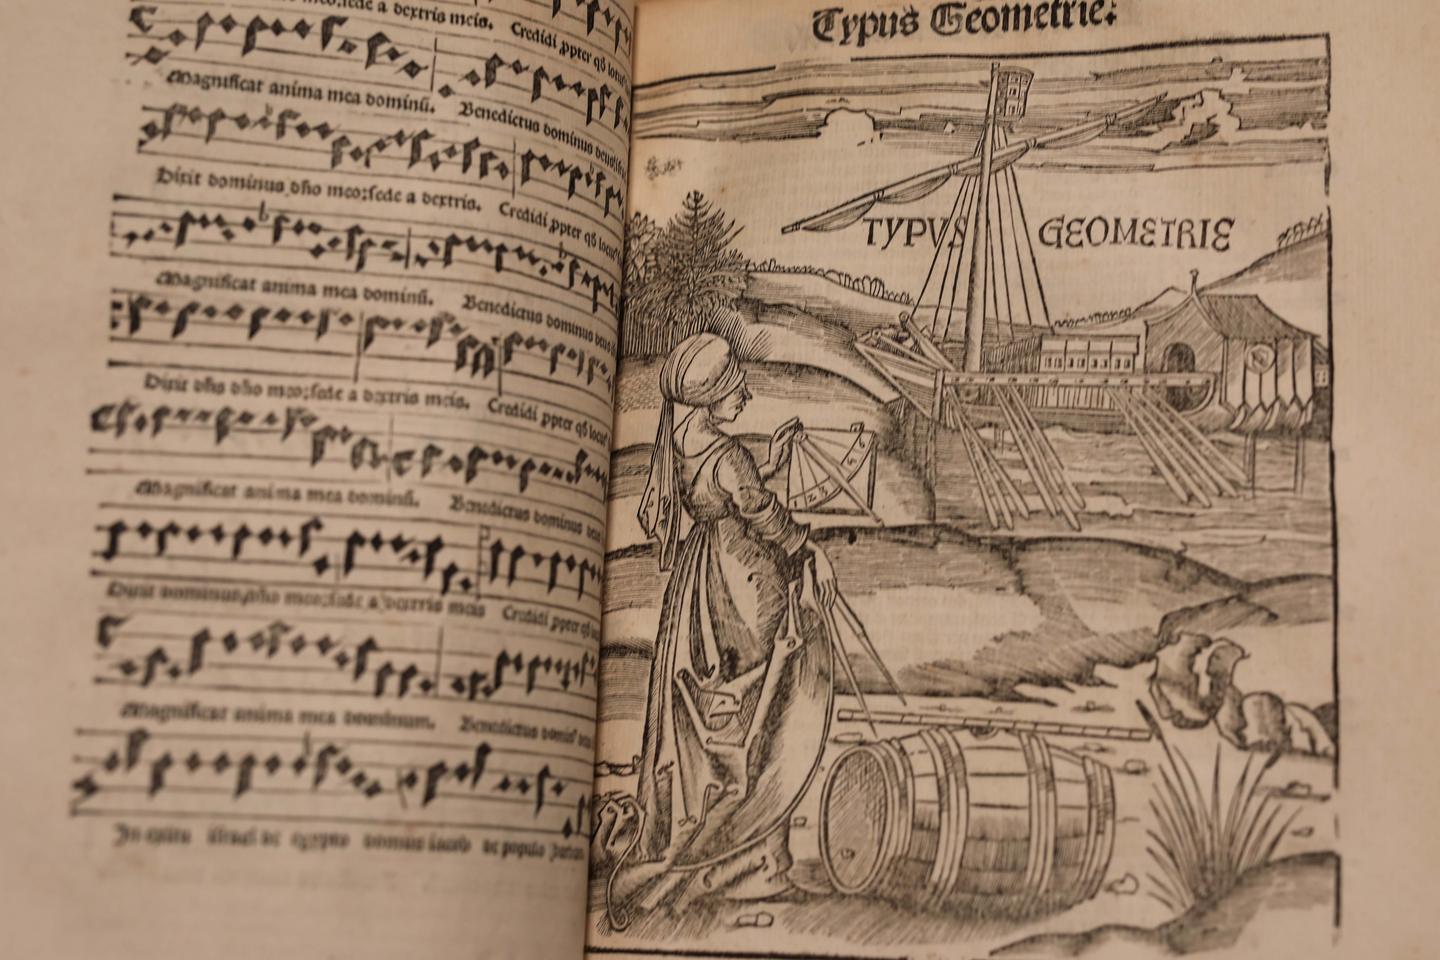 meo:sede a dextris meis. Credidi ꝓpter qđ locutus
Magnificat anima mea dominū. Benedictus dominus deus
Dixit dominus dño meo:sede a dextris. Credidi ꝓpter qđ locut
Magnificat anima mea dominū. Benedictus dominus
Dixit dñs dño meo:sede a dextris meis. Credidi ꝓpter qđ locut
Magnificat anima mea dominū. Benedictus dominus
Dixit dominus dño meo:sede a dextris meis Credidi ꝓpter qđ
Magnificat anima mea dominum. Benedictus
In exitu israel de egypto domus iacob de populo
Typus Geometrie.
TYPVS GEOMETRIE